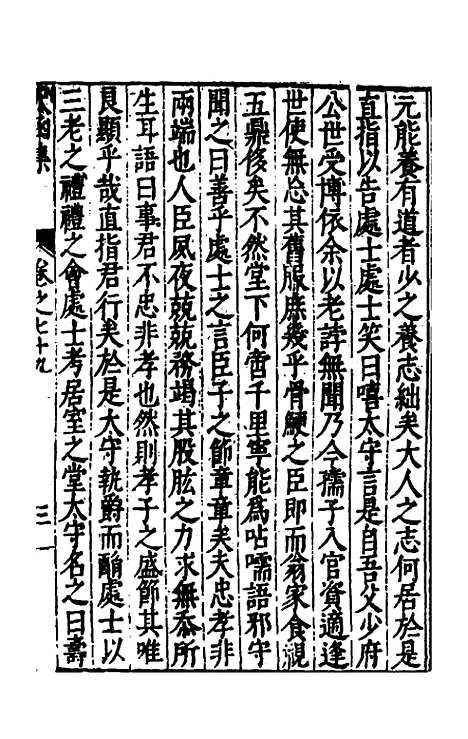 元能養有道者少之養志絀矣大人之志何居於是
直指以告處士處士笑曰嘻太守言是自吾父少府
公世受博依余以老誖無聞乃今孺子入官資適逢
世使無忘其舊服庶幾乎骨鯁之臣即而翁家食視
五鼎侈矣不然堂下何啻千里寧能爲呫嚅語邪守
聞之曰善乎處士之言臣子之節童童矣夫忠孝非
兩端也人臣夙夜兢兢務竭其股肱之力求無忝所
生耳語曰事君不忠非孝也然則孝子之盛節其唯
良顯乎哉直指君行矣於是太守執爵而酳處士以
三老之禮禮之會處士考居室之堂太守名之曰壽
卷之七十九
三